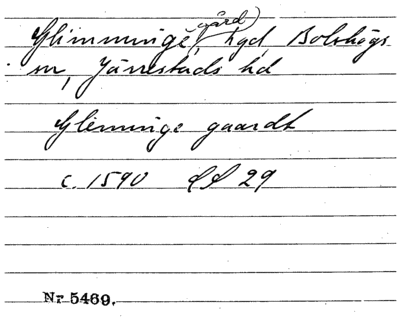 Glimminge, gård, hgd, Bolshögs
sn, Järrestads hd
Glimminge gaardt
c. 1590 29
Nr 5469.